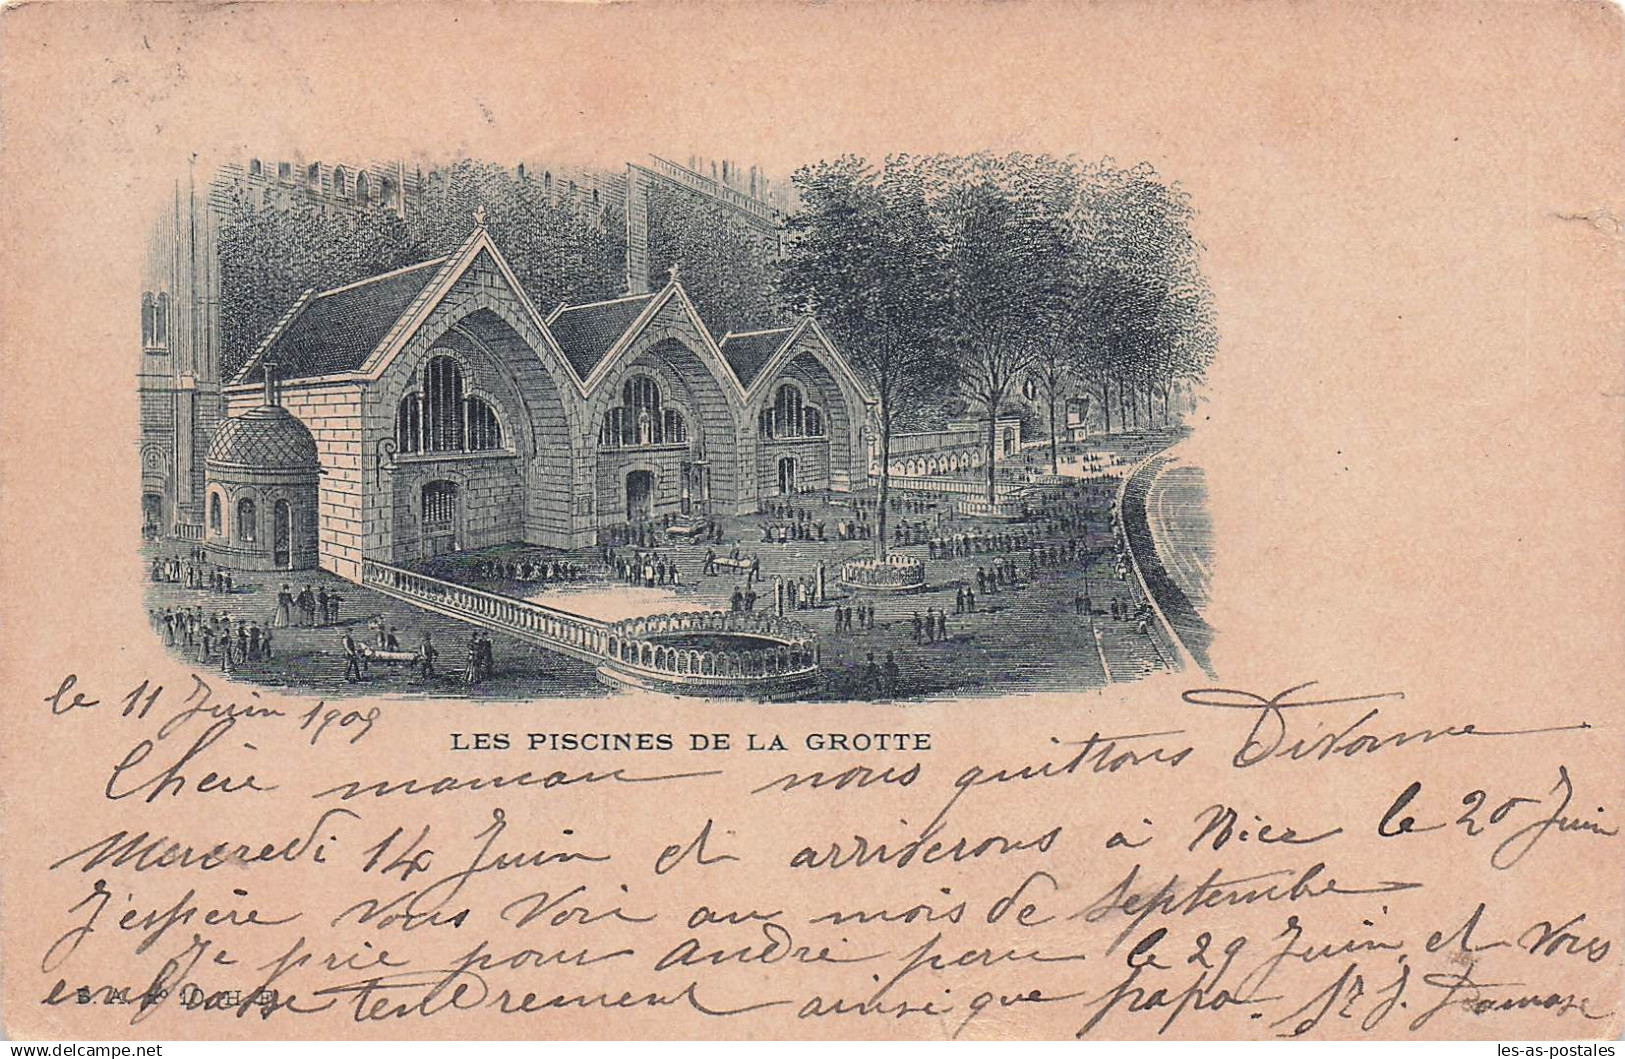 le 11 Juin 1905
LES PISCINES DE LA GROTTE
Chère maman nous quittons Divonne
Mercredi 14 Juin et arriverons à Nice le 20 Juin
J'espère vous voir au mois de Septembre
Je prie pour André pour le 29 Juin et vous
embrasse tendrement ainsi que papa.
www.delcampe.net
les-as-postales